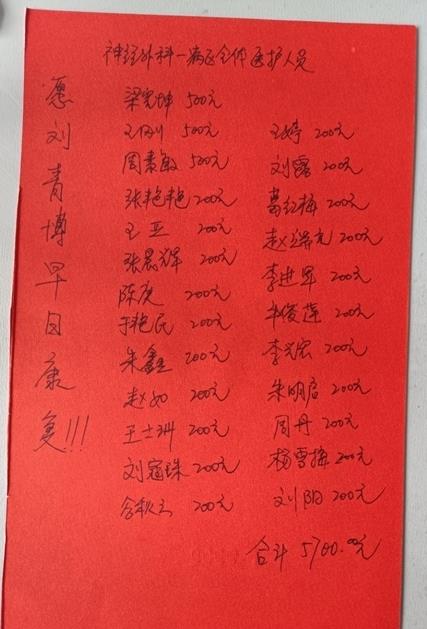 神经外科一病区全体医护人员
愿刘青博早日康复!!!
梁宪坤 500元
王刚 500元 王婷 200元
周素敏 500元 刘露 200元
张艳艳 200元 葛红梅 200元
王亚 200元 赵瑞克 200元
张晨辉 200元 李进军 200元
陈庚 200元 牛俊莲 200元
于艳民 200元 李兴宏 200元
朱鑫 200元 朱明启 200元
赵如 200元 周丹 200元
王士洲 200元 杨雪梅 200元
刘寇珠 200元 刘阳 200元
秋云 200元
合计 5700.00元